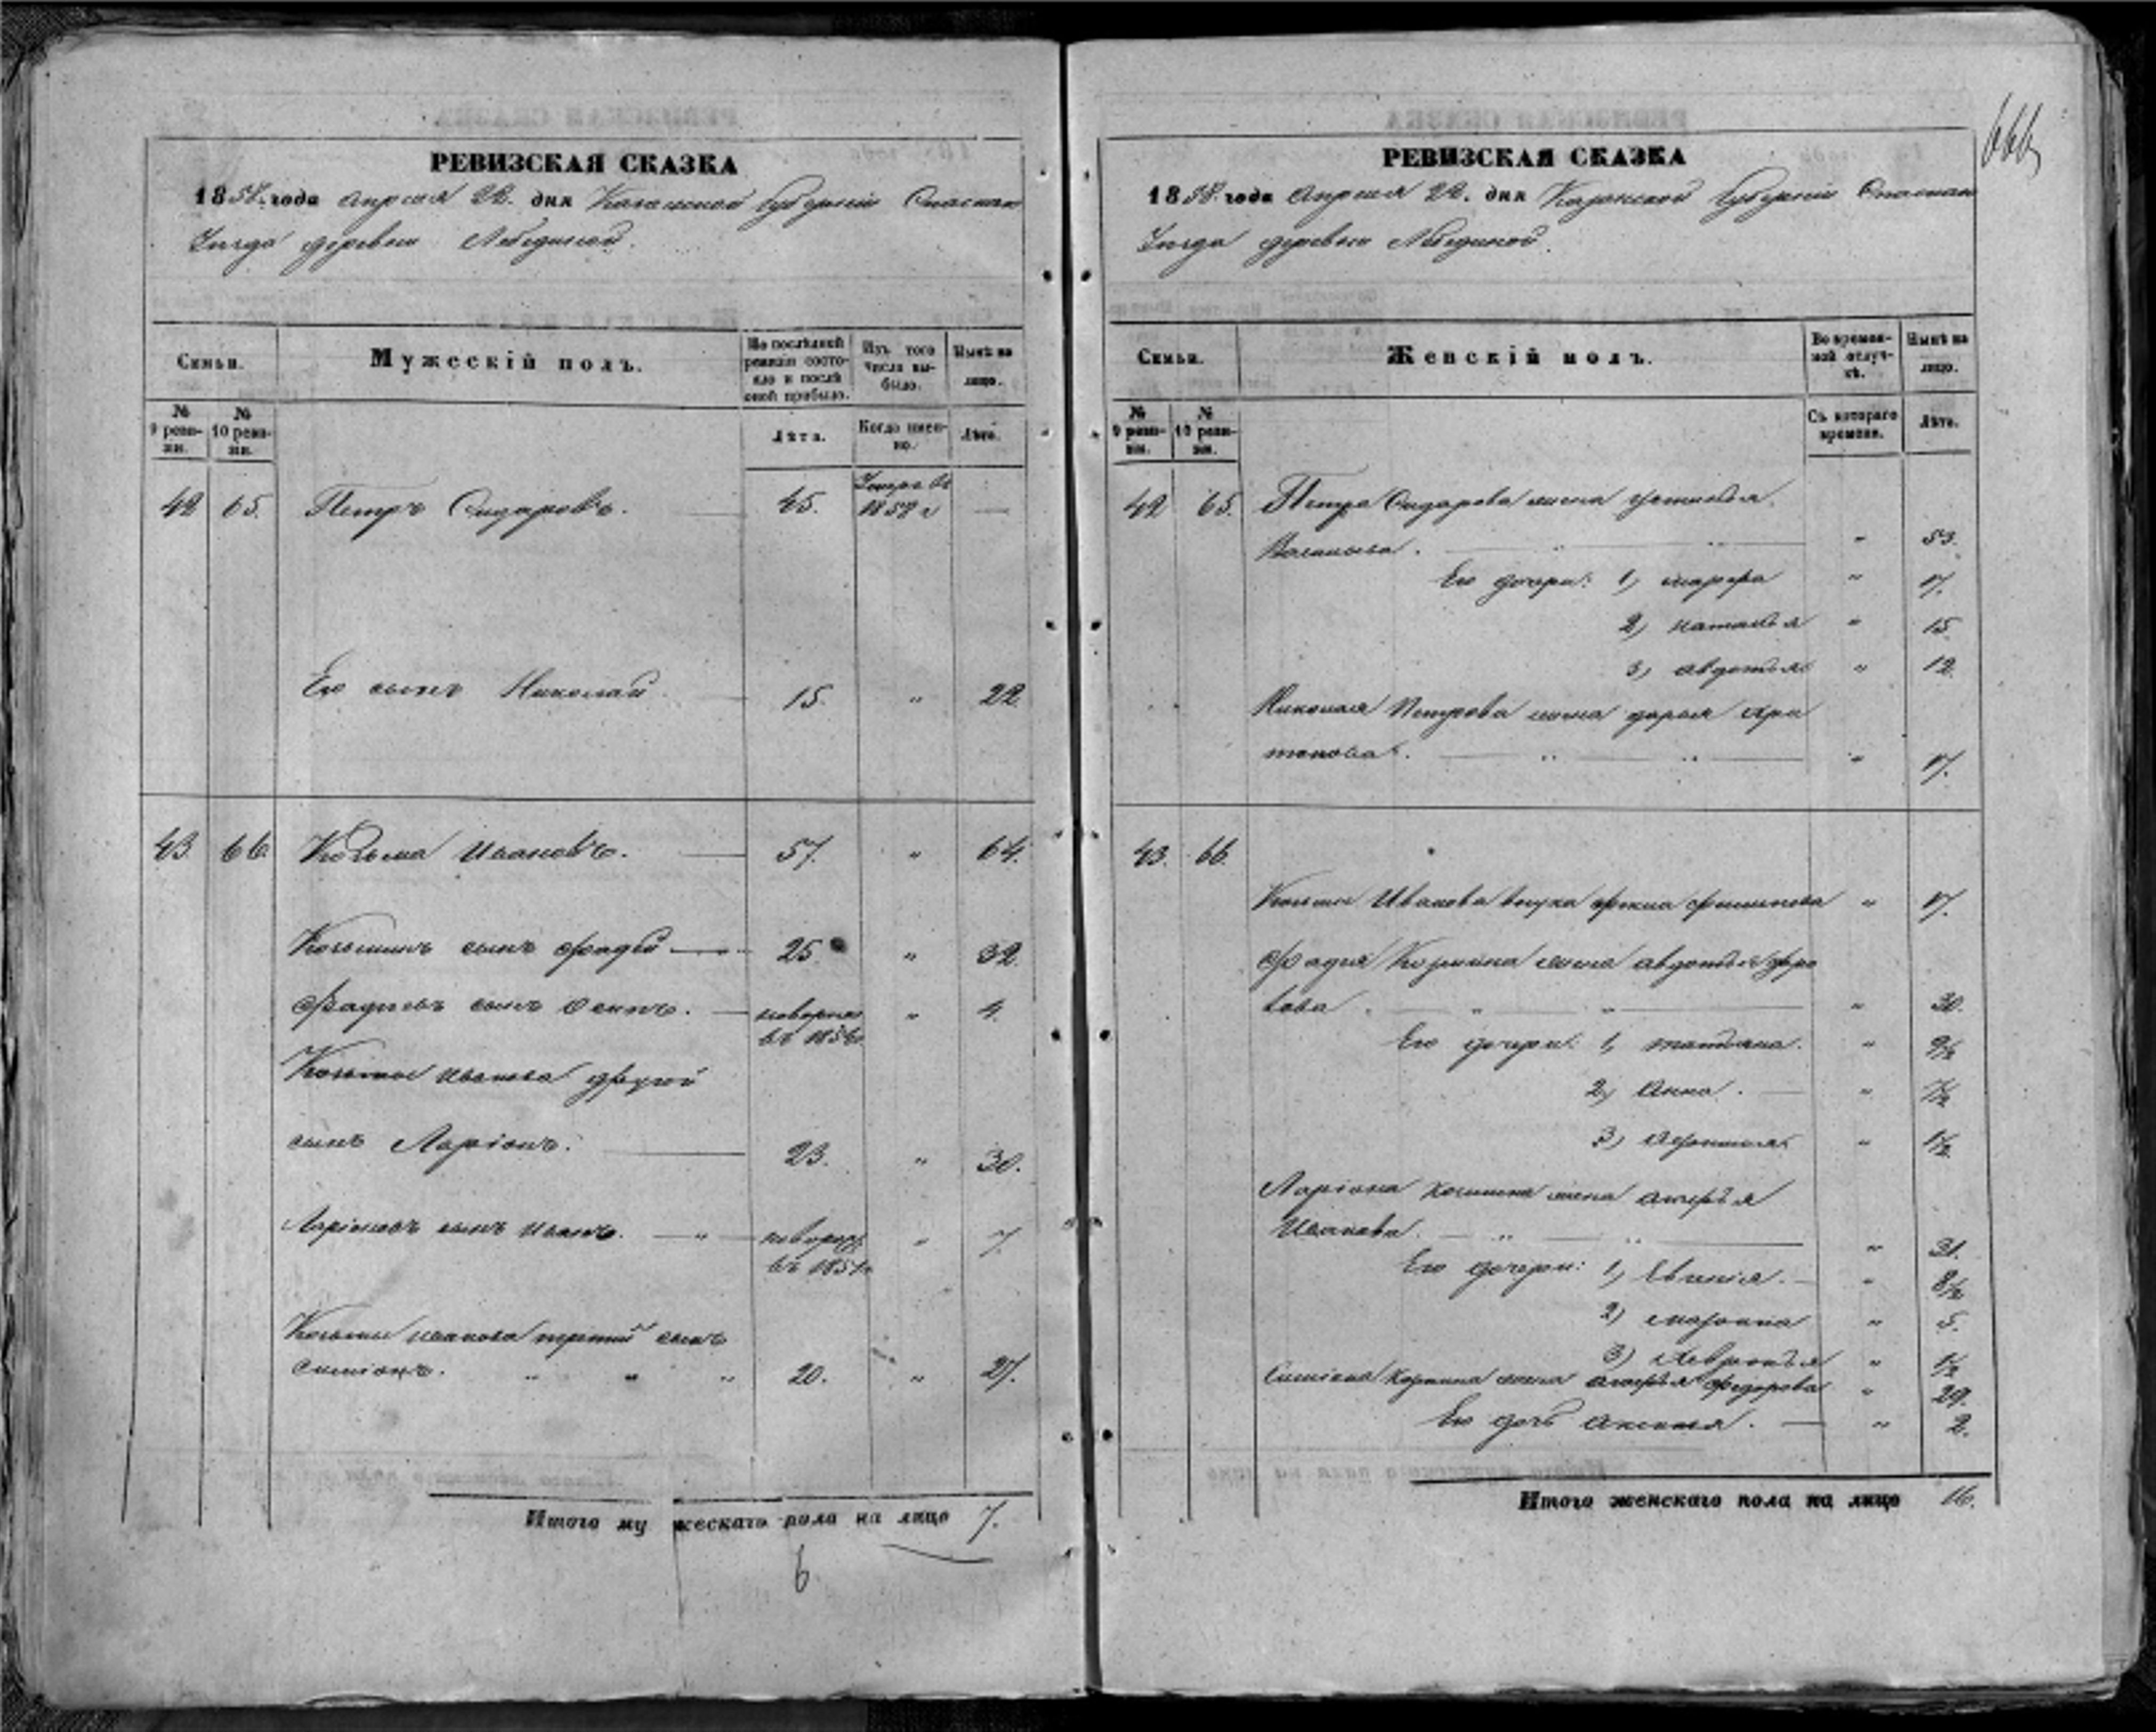 РЕВИЗСКАЯ СКАЗКА
1858 года апреля 22. дня Казанской губерніи Спаскаго
Уѣзда деревни Лебединой.
Семьи.
Мужескій полъ.
По послѣдней ревизіи состояло и послѣ оной прибыло.
Изъ того числа выбыло.
Нынѣ на лицо.
№ 9 ревизіи.
№ 10 ревизіи.
Лѣта.
Когда именно.
Лѣта.
42 65. Петръ Сидаровъ. 45. Умеръ въ 1857 г —
Его сынъ Николай 15. " 22.
43 66 Козьма Ивановъ. 57. " 64.
Козьминъ сынъ Фадей 25. " 32.
Фадеевъ сынъ Осипъ. новорож въ 185 " 4.
Козьмы Иванова другой
сынъ Ларіонъ. 23. " 30.
Ларіоновъ сынъ Иванъ. " новорож въ 1851г " 7.
Козьмы Иванова третій сынъ
Симіонъ. " " " 20. " 27.
Итого мужескаго пола на лицо 7.
6
666
РЕВИЗСКАЯ СКАЗКА
1858 года Апреля 22. дня Казанской Губерніи Спаскаго
Уѣзда деревни Лебединой.
Семьи.
Женскій полъ.
Во временной отлучкѣ.
Нынѣ на лицо.
№ 9 ревизіи.
№ 10 ревизіи.
Съ котораго времени.
Лѣта.
42 65. Петра Сидарова жена Устинья
" " " 53.
Его дочери: 1, марфа " 17.
2, наталья " 15
3, авдотья " 12
Николая Петрова жена дарья Хри
тонова. " " " 17.
43. 66.
Козьмы Иванова внука Филипова " 17.
Фадея Козмина жена авдотья
" " " 30.
Его дочери: 1, татьяна. " 9½
2, Анна. " 7½
3, " 1½
Ларіона Козмина жена
Иванова. " " " 31.
Его дочери: 1, " 8½
2) " 5.
3) " 1½
Симіона Козмина жена Федорова " 29.
Его дочь Аксинья. " 2.
Итого женскаго пола на лицо 16.